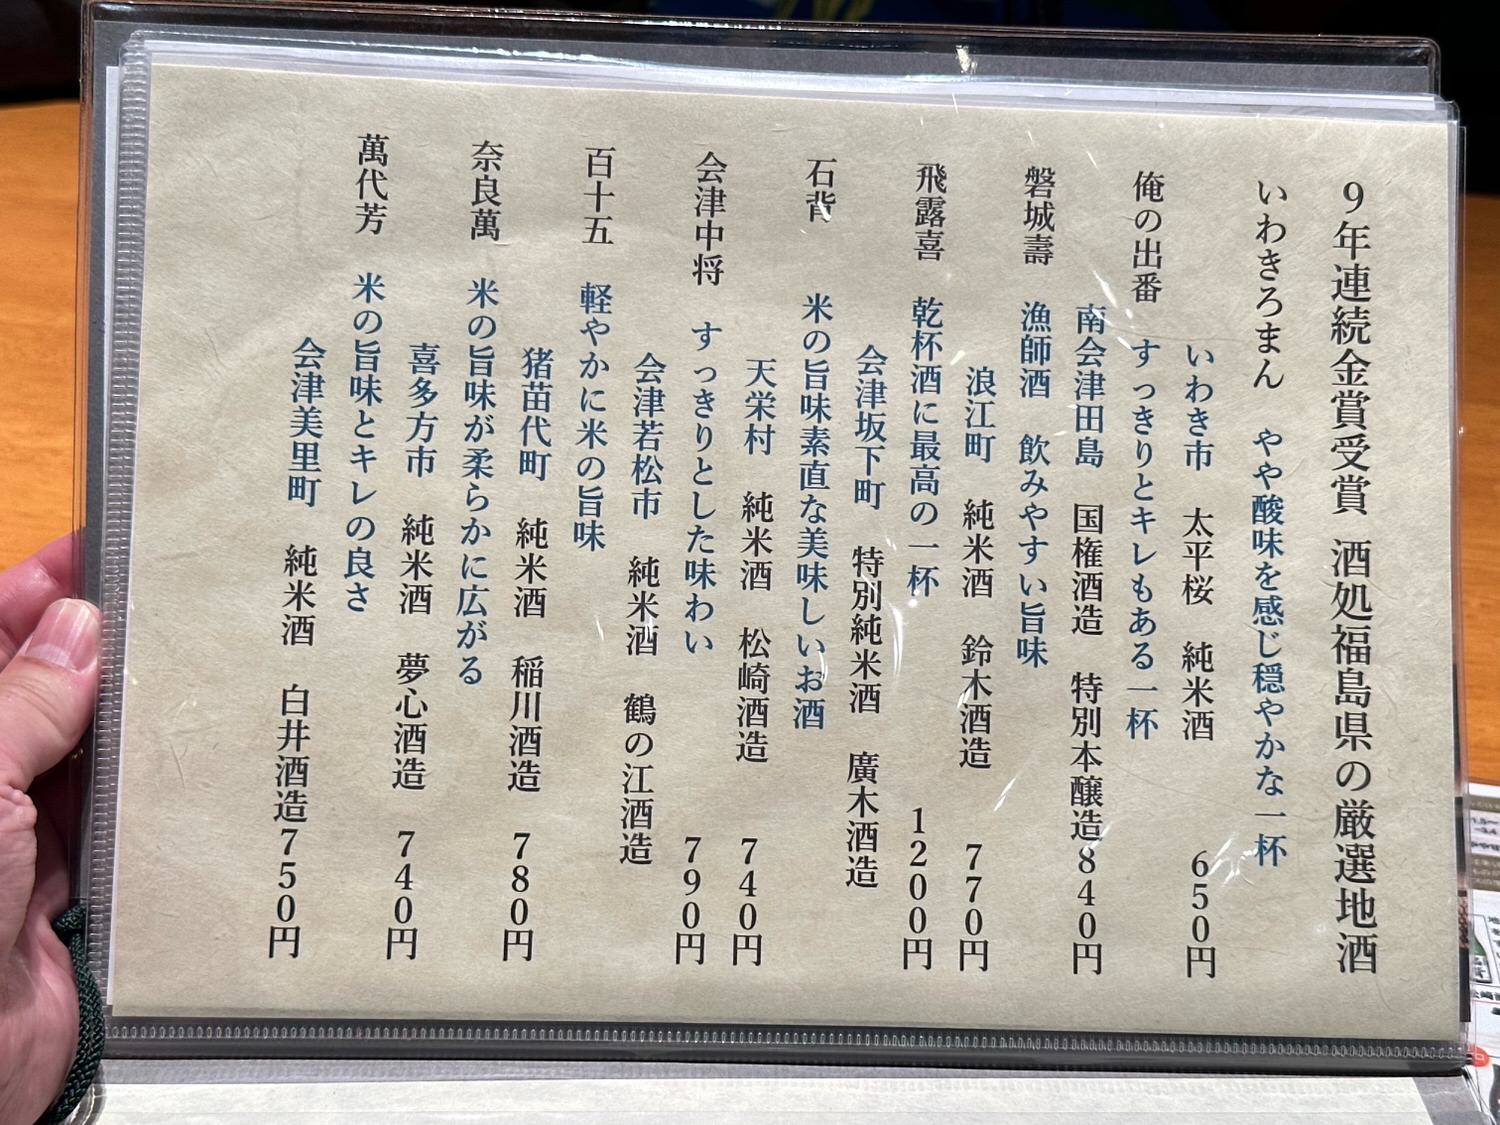 9年連続金賞受賞 酒処福島県の厳選地酒
いわきろまん やや酸味を感じ穏やかな一杯
いわき市 太平桜 純米酒 650円
俺の出番 すっきりとキレもある一杯
南会津田島 国権酒造 特別本醸造840円
磐城壽 漁師酒 飲みやすい旨味
浪江町 純米酒 鈴木酒造 770円
飛露喜 乾杯酒に最高の一杯 1200円
会津坂下町 特別純米酒 廣木酒造
石背 米の旨味素直な美味しいお酒
天栄村 純米酒 松崎酒造 740円
会津中将 すっきりとした味わい 790円
会津若松市 純米酒 鶴の江酒造
百十五 軽やかに米の旨味
猪苗代町 純米酒 稲川酒造 780円
奈良萬 米の旨味が柔らかに広がる
喜多方市 純米酒 夢心酒造 740円
萬代芳 米の旨味とキレの良さ
会津美里町 純米酒 白井酒造750円